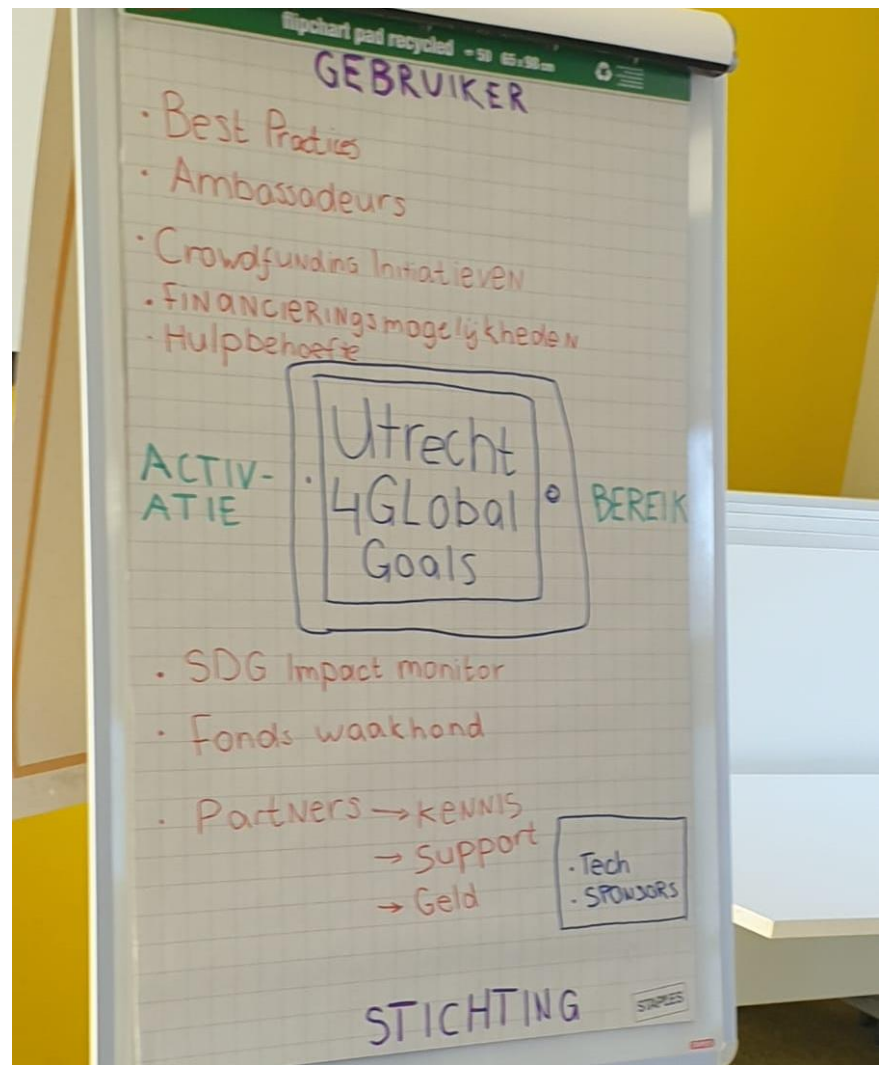 flipchart pad recycled - 50 65x98cm
GEBRUIKER
· Best Practices
· Ambassadeurs
· Crowdfunding Initiatieven
· Financieringsmogelijkheden
· Hulpbehoefte
Utrecht
4Global
Goals
ACTIV-
ATIE
BEREIK
· SDG Impact monitor
· Fonds waakhond
· Partners → KENNIS
→ Support
→ Geld
· Tech
· SPONSORS
STICHTING
STAPLES